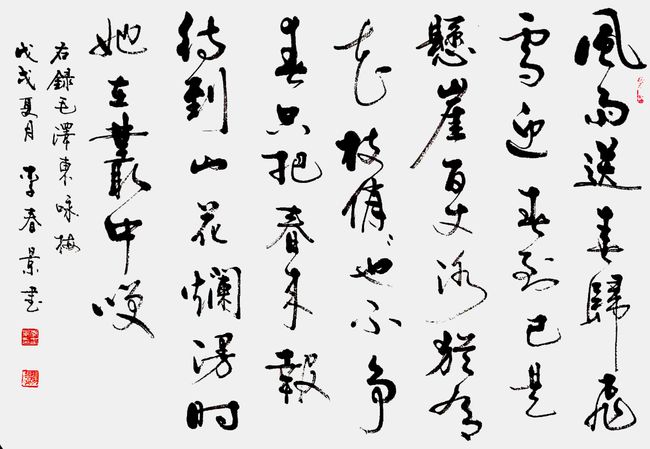 風雨送春歸飛
雪迎春到已是
懸崖百丈冰猶有
花枝俏〻也不争
春只把春来報
待到山花爛漫时
她在叢中咲
右録毛澤東咏梅
戊戌夏月 李春景書